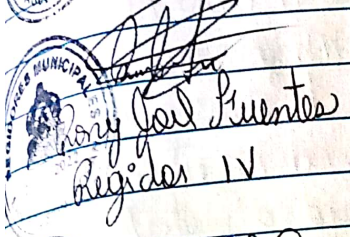 MUNICIPAL
Rony Joel Fuentes
Regidor IV